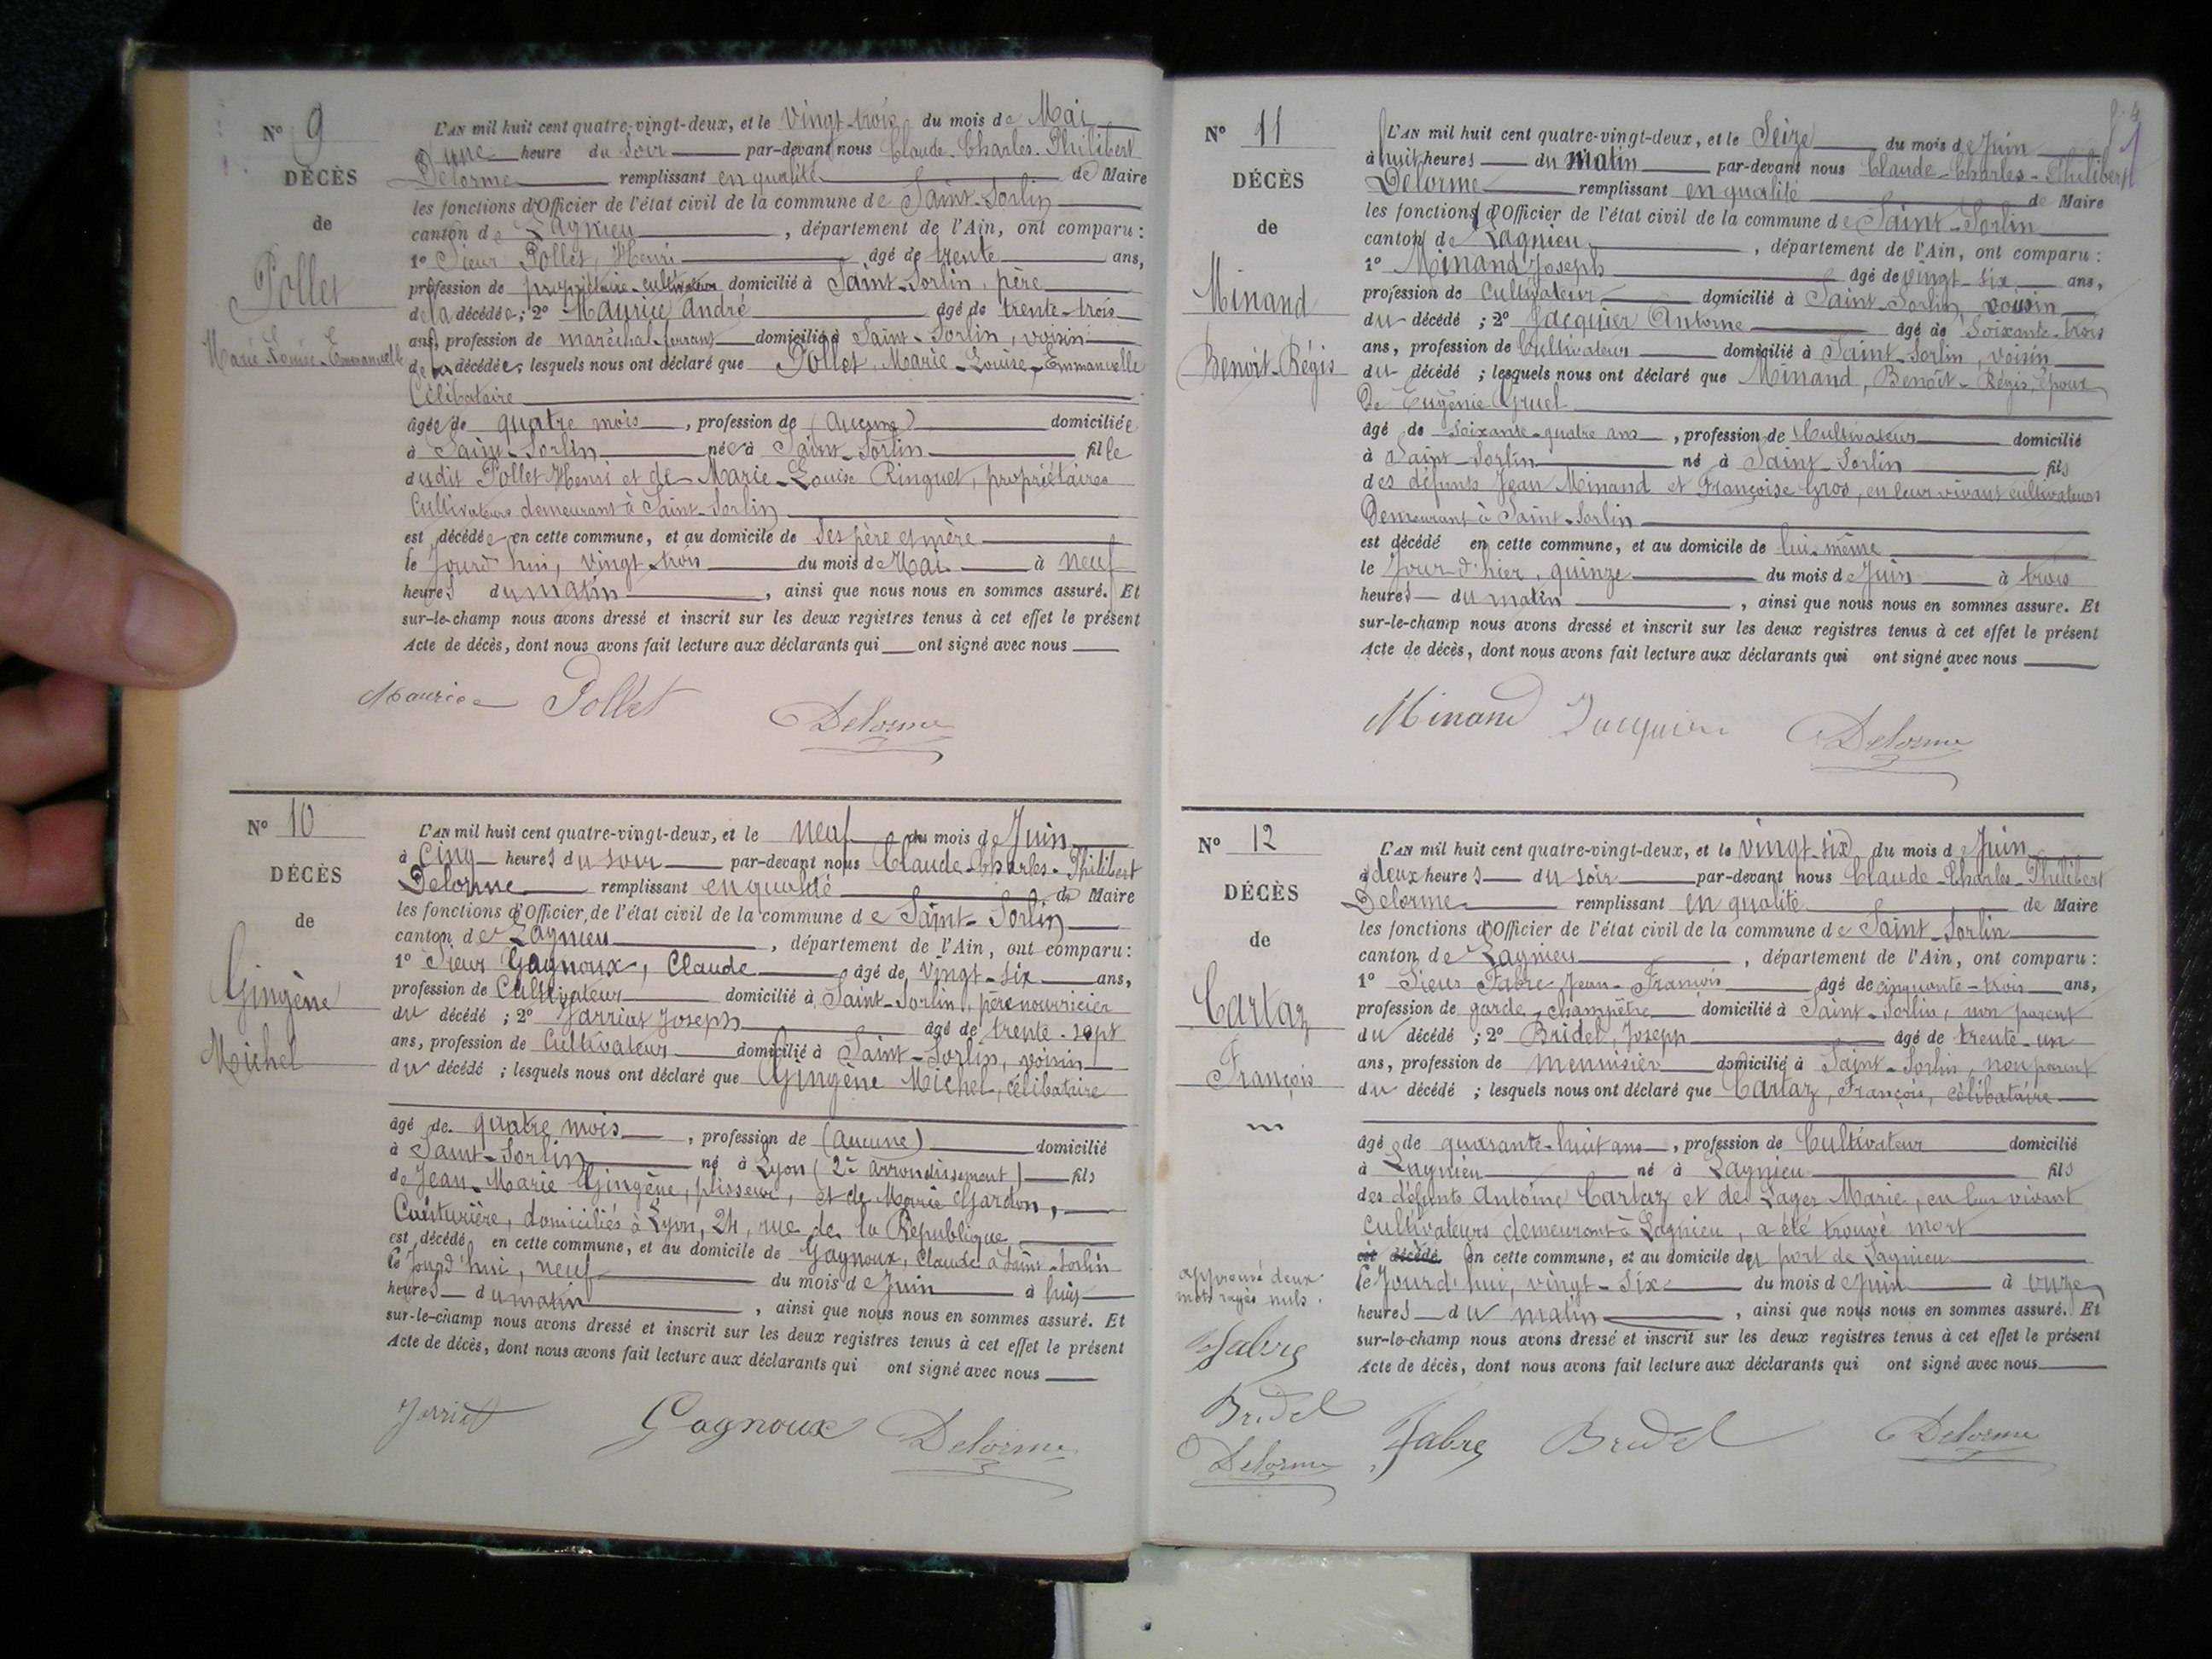 N° 9
DÉCÈS
de
Pollet
Marie-Louise-Emmanuelle
L'AN mil huit cent quatre-vingt-deux, et le vingt-trois du mois de Mai
D'une heure du Soir par-devant nous Claude-Charles-Philibert
Delorme remplissant en qualité de Maire
les fonctions d'Officier de l'état civil de la commune de Saint-Sorlin
canton de Lagnieu, département de l'Ain, ont comparu :
1° Sieur Pollet, Henri âgé de trente ans,
profession de propriétaire-cultivateur domicilié à Saint-Sorlin, père
de la décédée ; 2° Maurice André âgé de trente-trois
ans, profession de maréchal-ferrant domicilié à Saint-Sorlin, voisin
de la décédée, lesquels nous ont déclaré que Pollet, Marie-Louise-Emmanuelle
Célibataire
âgée de quatre mois, profession de (aucune) domiciliée
à Saint-Sorlin née à Saint-Sorlin fille
dudit Pollet Henri et de Marie-Louise Ringuet, propriétaires
Cultivateurs demeurant à Saint-Sorlin
est décédée en cette commune, et au domicile de Ses père et mère
le Jourd'hui, vingt-trois du mois de Mai à neuf
heures du matin, ainsi que nous nous en sommes assuré. Et
sur-le-champ nous avons dressé et inscrit sur les deux registres tenus à cet effet le présent
Acte de décès, dont nous avons fait lecture aux déclarants qui ont signé avec nous
Maurice Pollet Delorme
N° 10
DÉCÈS
de
Gingène
Michel
L'AN mil huit cent quatre-vingt-deux, et le neuf du mois de Juin
à Cinq heures du soir par-devant nous Claude-Charles-Philibert
Delorme remplissant en qualité de Maire
les fonctions d'Officier de l'état civil de la commune de Saint-Sorlin
canton de Lagnieu, département de l'Ain, ont comparu :
1° Sieur Gagnoux, Claude âgé de vingt-six ans,
profession de Cultivateur domicilié à Saint-Sorlin, père nourricier
du décédé ; 2° Jarriat Joseph âgé de trente-sept
ans, profession de Cultivateur domicilié à Saint-Sorlin, voisin
du décédé ; lesquels nous ont déclaré que Gingène Michel, célibataire
âgé de quatre mois, profession de (aucune) domicilié
à Saint-Sorlin né à Lyon (2e arrondissement) fils
de Jean-Marie Gingène, plisseur, et de Marie Gardon,
Couturière, domiciliés à Lyon, 24, rue de la République
est décédé, en cette commune, et au domicile de Gagnoux, Claude à Saint-Sorlin
le Jourd'hui, neuf du mois de Juin à huit
heures du matin, ainsi que nous nous en sommes assuré. Et
sur-le-champ nous avons dressé et inscrit sur les deux registres tenus à cet effet le présent
Acte de décès, dont nous avons fait lecture aux déclarants qui ont signé avec nous
Gagnoux Delorme
N° 11
DÉCÈS
de
Minand
Benoit-Régis
L'AN mil huit cent quatre-vingt-deux, et le Seize du mois de Juin
à huit heures du matin par-devant nous Claude-Charles-Philibert
Delorme remplissant en qualité de Maire
les fonctions d'Officier de l'état civil de la commune de Saint-Sorlin
canton de Lagnieu, département de l'Ain, ont comparu :
1° Minand Joseph âgé de vingt-six ans,
profession de Cultivateur domicilié à Saint-Sorlin, cousin
du décédé ; 2° Jacquier Antoine âgé de Soixante-trois
ans, profession de Cultivateur domicilié à Saint-Sorlin, voisin
du décédé ; lesquels nous ont déclaré que Minand, Benoît-Régis, époux
De Eugénie Gruel
âgé de soixante-quatre ans, profession de Cultivateur domicilié
à Saint-Sorlin né à Saint-Sorlin fils
des défunts Jean Minand et Françoise Gros, en leur vivant cultivateurs
Demeurant à Saint-Sorlin
est décédé en cette commune, et au domicile de lui-même
le Jour d'hier, quinze du mois de Juin à trois
heures du matin, ainsi que nous nous en sommes assuré. Et
sur-le-champ nous avons dressé et inscrit sur les deux registres tenus à cet effet le présent
Acte de décès, dont nous avons fait lecture aux déclarants qui ont signé avec nous
Minand Jacquier Delorme
N° 12
DÉCÈS
de
Cartaz
François
L'AN mil huit cent quatre-vingt-deux, et le vingt-six du mois de Juin
à deux heures du soir par-devant nous Claude-Charles-Philibert
Delorme remplissant en qualité de Maire
les fonctions d'Officier de l'état civil de la commune de Saint-Sorlin
canton de Lagnieu, département de l'Ain, ont comparu :
1° Sieur Fabre Jean-François âgé de cinquante-trois ans,
profession de garde-champêtre domicilié à Saint-Sorlin, non parent
du décédé ; 2° Bridel, Joseph âgé de trente-un
ans, profession de menuisier domicilié à Saint-Sorlin, non parent
du décédé ; lesquels nous ont déclaré que Cartaz, François, célibataire
âgé de quarante-huit ans, profession de Cultivateur domicilié
à Lagnieu né à Lagnieu fils
des défunts Antoine Cartaz et de Lager Marie, en leur vivant
cultivateurs demeurant à Lagnieu, a été trouvé mort
est décédé en cette commune, et au domicile de port de Lagnieu
le Jourd'hui, vingt-six du mois de Juin à onze
heures du matin, ainsi que nous nous en sommes assuré. Et
sur-le-champ nous avons dressé et inscrit sur les deux registres tenus à cet effet le présent
Acte de décès, dont nous avons fait lecture aux déclarants qui ont signé avec nous
approuvé deux
mots rayés nuls.
Fabre
Bridel
Delorme
Fabre Bridel Delorme